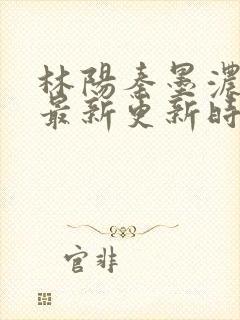 林陽秦墨濃
最新更新時
官非